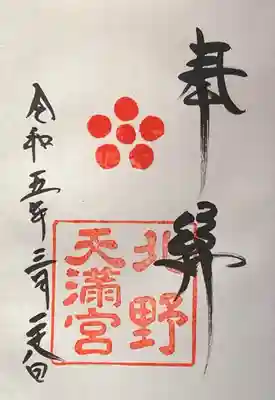 奉拝
北野
天満宮
令和五年三月日